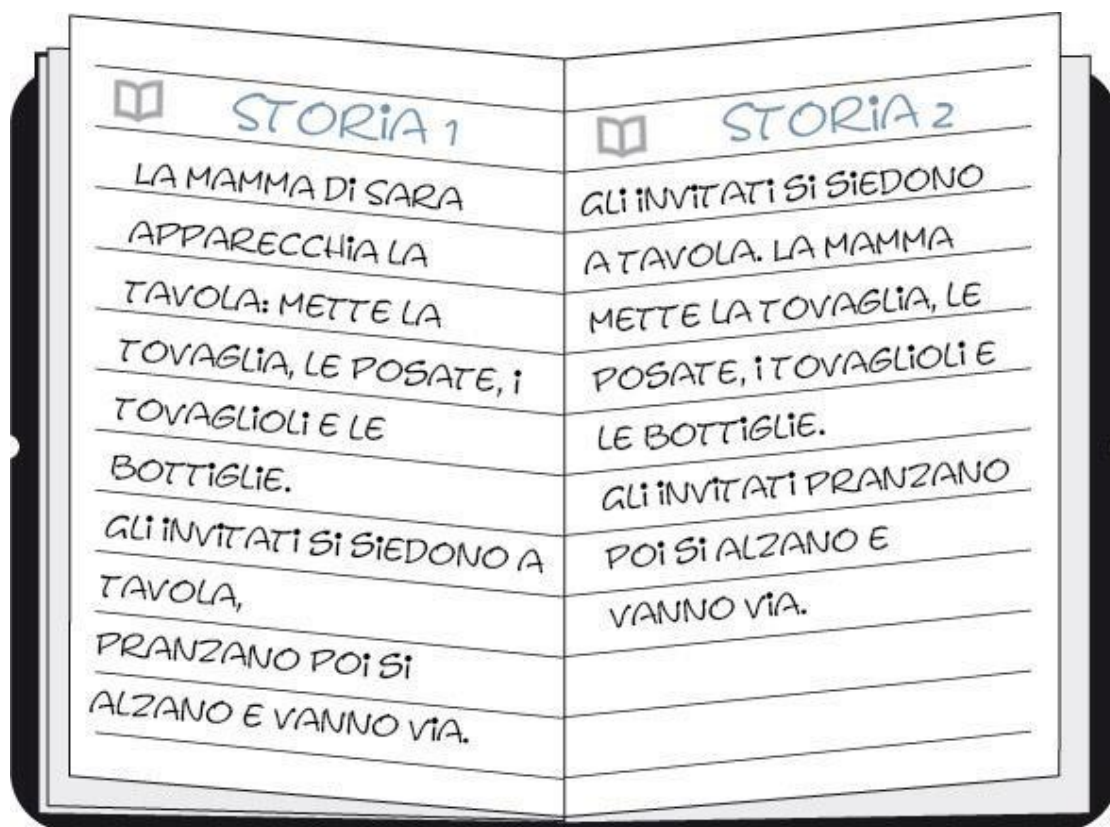 STORIA 1
LA MAMMA DI SARA
APPARECCHIA LA
TAVOLA: METTE LA
TOVAGLIA, LE POSATE, I
TOVAGLIOLI E LE
BOTTIGLIE.
GLI INVITATI SI SIEDONO A
TAVOLA,
PRANZANO POI SI
ALZANO E VANNO VIA.
STORIA 2
GLI INVITATI SI SIEDONO
A TAVOLA. LA MAMMA
METTE LA TOVAGLIA, LE
POSATE, I TOVAGLIOLI E
LE BOTTIGLIE.
GLI INVITATI PRANZANO
POI SI ALZANO E
VANNO VIA.